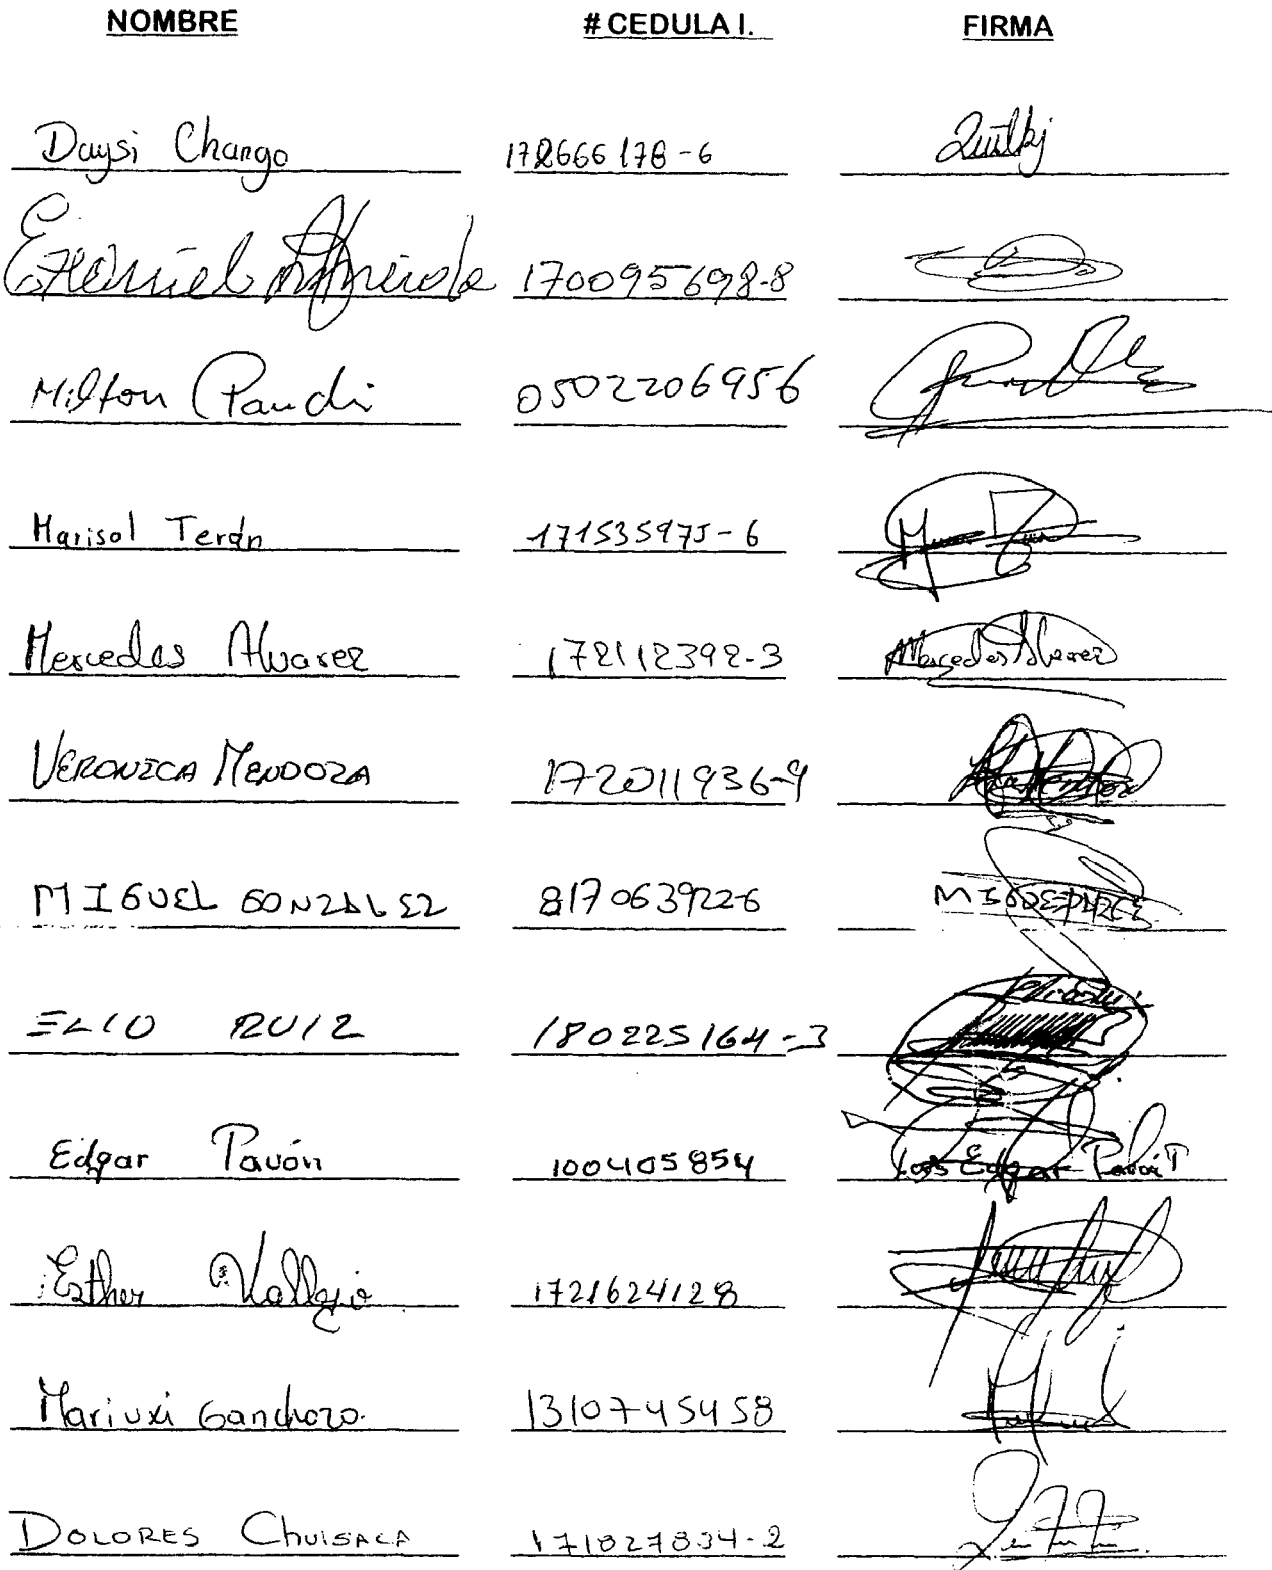 NOMBRE # CEDULA I. FIRMA
Daysi Chango 172666178-6
170095698-8
Milton Pandi 0502206956
Marisol Terán 171535975-6
Mercedes Alvarez 172112392-3 Mercedes Alvarez
VERONICA MENDOZA 172011936-9
MIGUEL GONZALEZ 8170639226
ELIO RUIZ 180225164-3
Edgar Pavón 1004105854 Luis Edgar Pavón T
Esther Vallejo 1721624128
Mariuxi Ganchozo. 1310745458
DOLORES ChUISACA 171027834-2